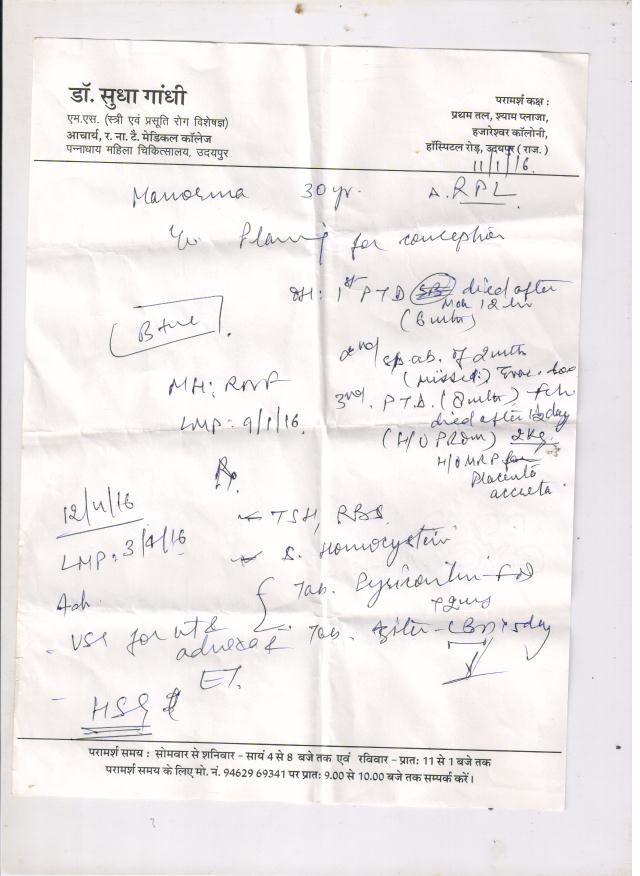 डॉ. सुधा गांधी
एम.एस. (स्त्री एवं प्रसूति रोग विशेषज्ञ)
आचार्य, र. ना. टै. मेडिकल कॉलेज
पन्नाधाय महिला चिकित्सालय, उदयपुर
परामर्श कक्ष :
प्रथम तल, श्याम प्लाजा,
हजारेश्वर कॉलोनी,
हॉस्पिटल रोड़, उदयपुर ( राज. )
11/1/16.
Manorma 30 yr. RPL
Planning for conception
OH: 1st PTD died after
12 hr
B+ve
2nd sp. ab. of 2 mth
(missed)
MH:
3rd. P.T.D. (8 mth)
LMP: 9/1/16.
died after 1/2 day
(H/O PROM) 2kg.
H/O MRP for
Placenta
accreta.
Rx.
12/4/16
TSH, RBS
LMP: 3/4/16
S. Homocystein
Adv.
Tab.
USG for ut &
adnexa &
Tab.
ET.
HSG
परामर्श समय : सोमवार से शनिवार - सायं 4 से 8 बजे तक एवं रविवार - प्रातः 11 से 1 बजे तक
परामर्श समय के लिए मो. नं. 94629 69341 पर प्रातः 9.00 से 10.00 बजे तक सम्पर्क करें।